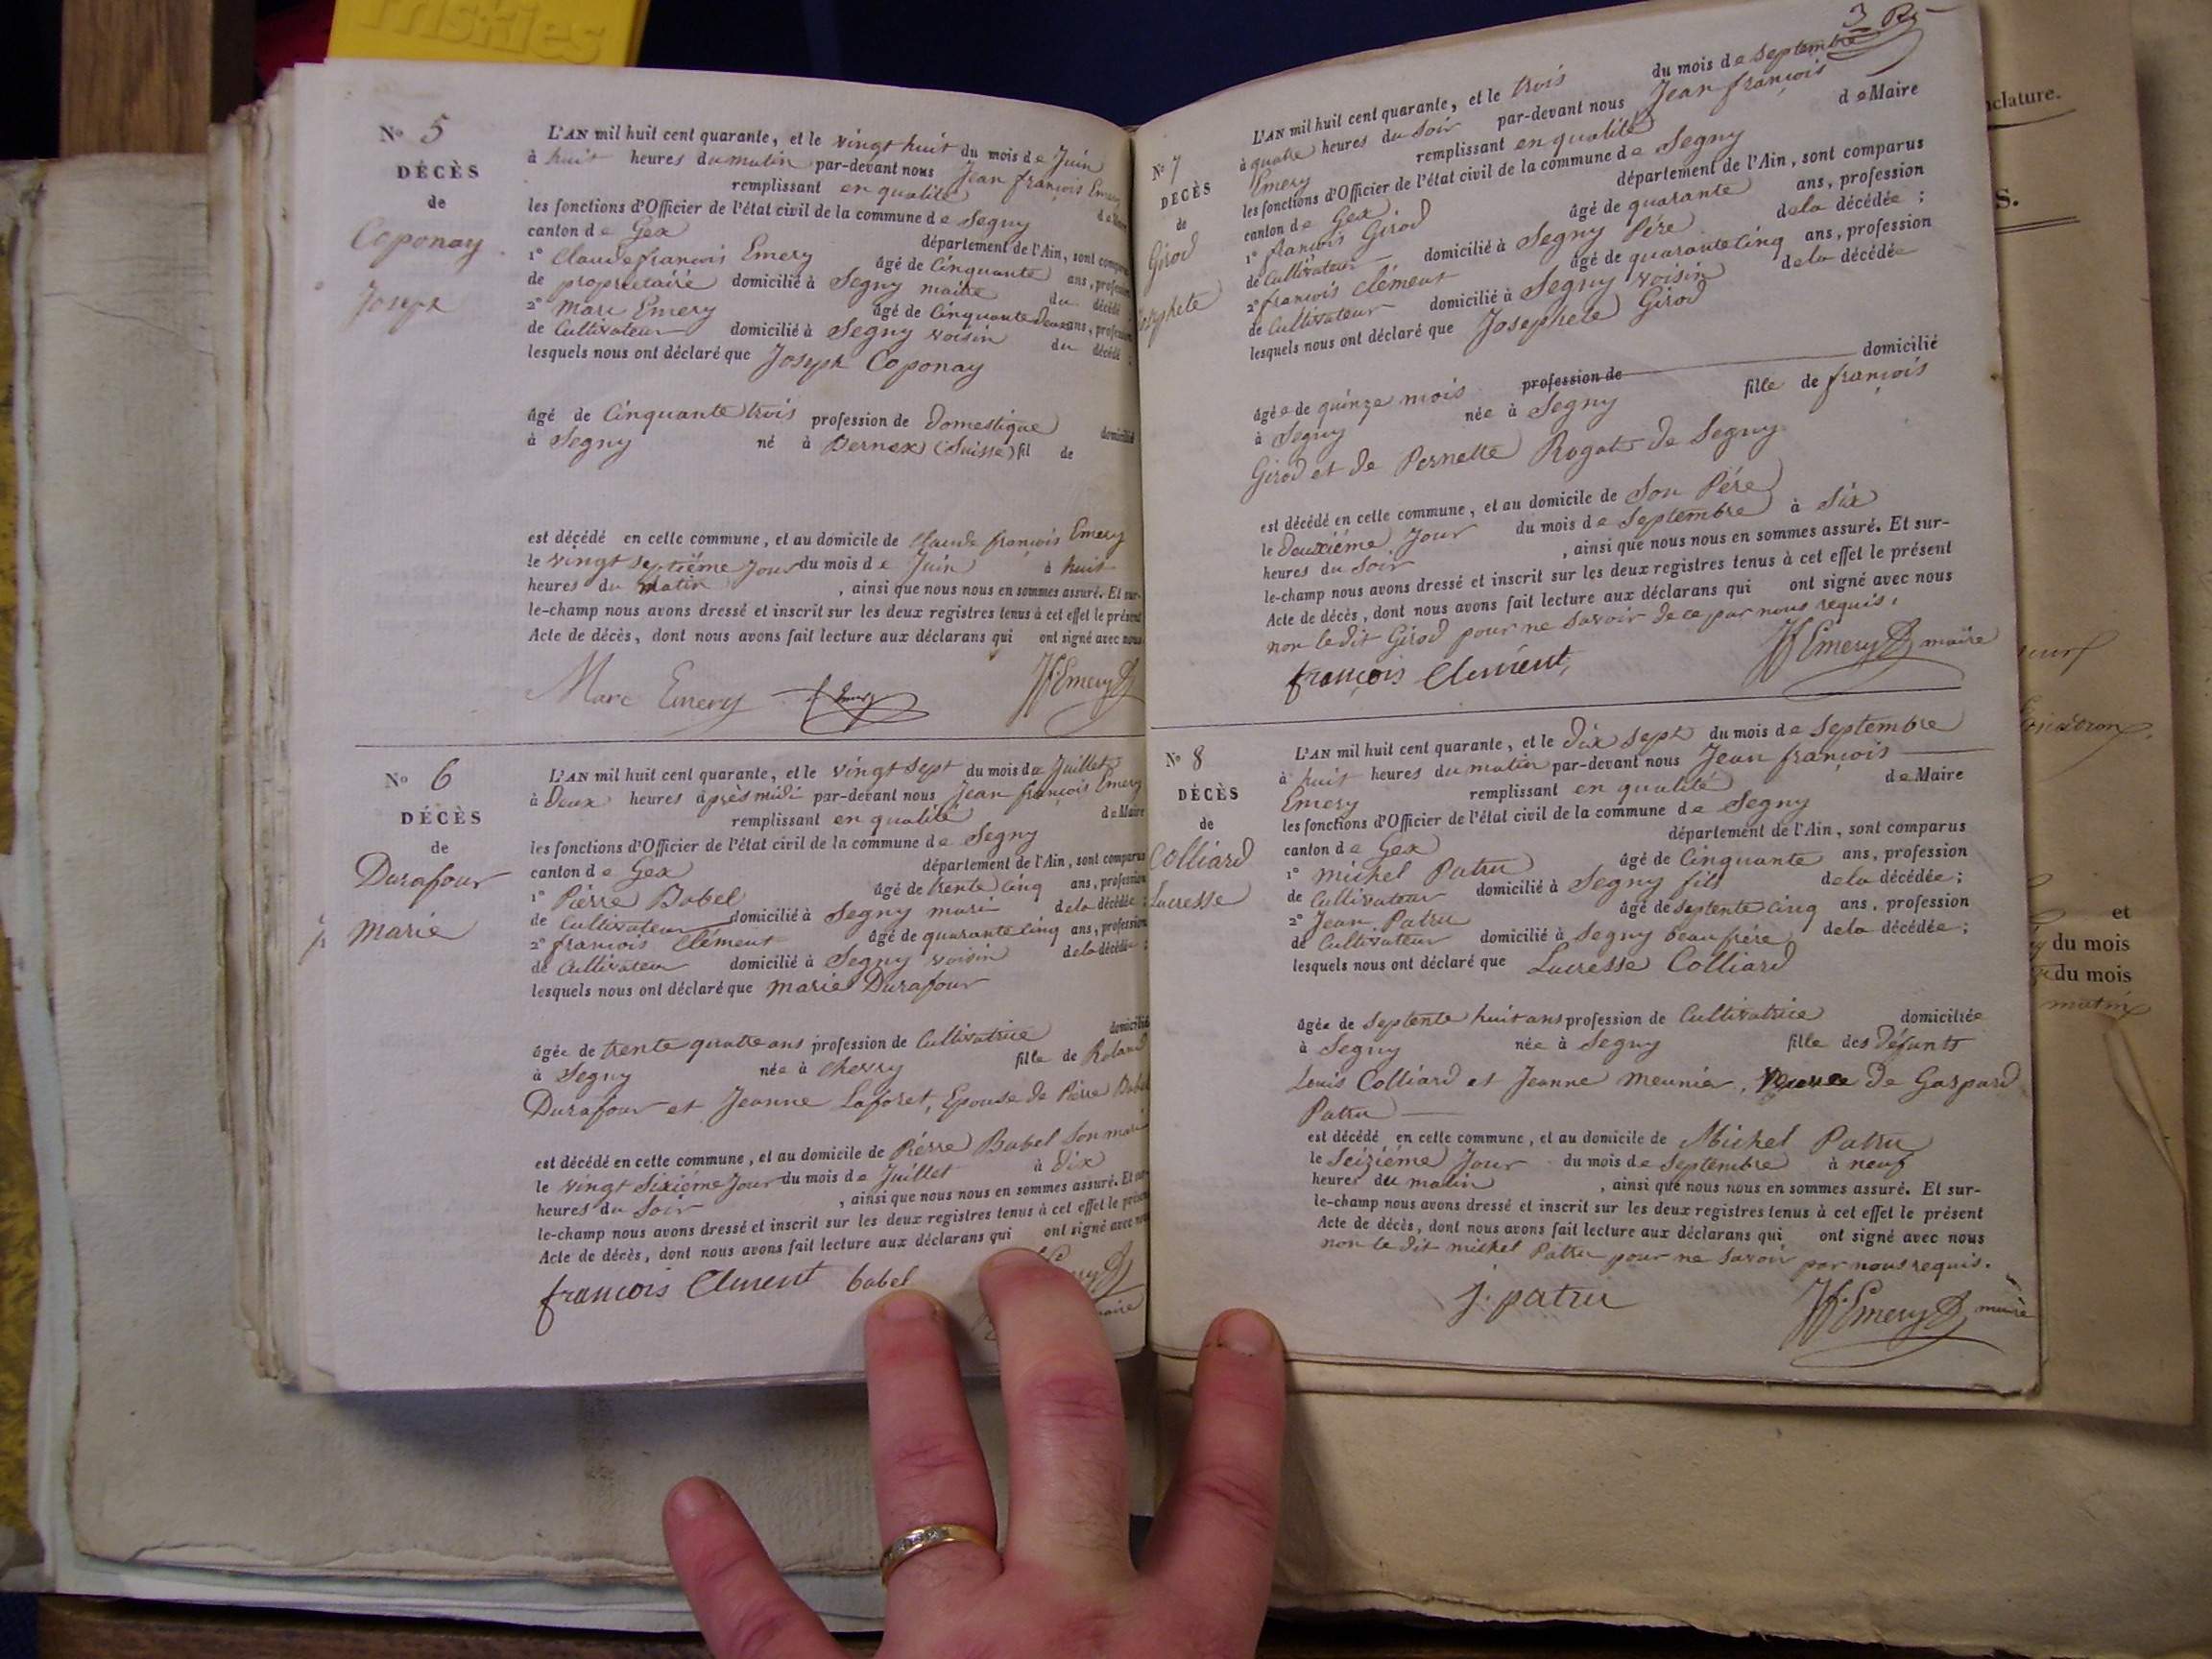 Friskies
N° 5
DÉCÈS
de
Coponay
Joseph
L'AN mil huit cent quarante, et le vingt huit du mois de Juin
à huit heures du matin par-devant nous Jean françois Emery
remplissant en qualité de Maire
les fonctions d'Officier de l'état civil de la commune de Segny
canton de Gex département de l'Ain, sont comparus
1° Claude françois Emery âgé de Cinquante ans, profession
de propriétaire domicilié à Segny maitre du décédé
2° Marc Emery âgé de Cinquante deux ans, profession
de Cultivateur domicilié à Segny voisin du décédé ;
lesquels nous ont déclaré que Joseph Coponay
âgé de Cinquante trois profession de Domestique domicilié
à Segny né à Bernex (Suisse) fil de
est décédé en cette commune, et au domicile de Claude françois Emery
le vingt septième Jour du mois de Juin à huit
heures du matin , ainsi que nous nous en sommes assuré. Et sur-
le-champ nous avons dressé et inscrit sur les deux registres tenus à cet effet le présent
Acte de décès, dont nous avons fait lecture aux déclarans qui ont signé avec nous
Marc Emery Emery Emery
N° 6
DÉCÈS
de
Durafour
Marie
L'AN mil huit cent quarante, et le vingt sept du mois de Juillet
à Deux heures après midi par-devant nous Jean françois Emery
remplissant en qualité de Maire
les fonctions d'Officier de l'état civil de la commune de Segny
canton de Gex département de l'Ain, sont comparus
1° Pierre Babel âgé de trente cinq ans, profession
de Cultivateur domicilié à Segny mari de la décédée ;
2° françois Clément âgé de quarante cinq ans, profession
de Cultivateur domicilié à Segny voisin de la décédée ;
lesquels nous ont déclaré que marie Durafour
âgée de trente quatre ans profession de Cultivatrice domicilié
à Segny née à chevry fille de Roland
Durafour et Jeanne Laforet, Epouse de Pierre Babel
est décédé en cette commune, et au domicile de Pierre Babel son mari
le vingt Sixième Jour du mois de Juillet à dix
heures du Soir , ainsi que nous nous en sommes assuré. Et sur-
le-champ nous avons dressé et inscrit sur les deux registres tenus à cet effet le présent
Acte de décès, dont nous avons fait lecture aux déclarans qui ont signé avec nous
françois Clement babel
maire
N° 7
DÉCÈS
de
Girod
L'AN mil huit cent quarante, et le trois du mois de Septembre
à quatre heures du Soir par-devant nous Jean françois
Emery remplissant en qualité de Maire
les fonctions d'Officier de l'état civil de la commune de Segny
canton de Gex département de l'Ain, sont comparus
1° françois Girod âgé de quarante ans, profession
de Cultivateur domicilié à Segny Père de la décédée ;
2° françois Clément âgé de quarante cinq ans, profession
de Cultivateur domicilié à Segny voisin de la décédée
lesquels nous ont déclaré que Josephete Girod
âgée de quinze mois profession de domicilié
à Segny née à Segny fille de françois
Girod et de Pernette Rogat de Segny
est décédé en cette commune, et au domicile de Son Père
le deuxième Jour du mois de Septembre à Six
heures du Soir , ainsi que nous nous en sommes assuré. Et sur-
le-champ nous avons dressé et inscrit sur les deux registres tenus à cet effet le présent
Acte de décès, dont nous avons fait lecture aux déclarans qui ont signé avec nous
non le dit Girod pour ne savoir de ce par nous requis.
françois Clement Emery maire
N° 8
DÉCÈS
de
Colliard
Lucresse
L'AN mil huit cent quarante, et le dix sept du mois de Septembre
à huit heures du matin par-devant nous Jean françois
Emery remplissant en qualité de Maire
les fonctions d'Officier de l'état civil de la commune de Segny
canton de Gex département de l'Ain, sont comparus
1° michel Patru âgé de Cinquante ans, profession
de Cultivateur domicilié à Segny fils de la décédée ;
2° Jean Patru âgé de septente cinq ans, profession
de Cultivateur domicilié à Segny beau frère de la décédée ;
lesquels nous ont déclaré que Lucresse Colliard
âgée de Septente huit ans profession de Cultivatrice domiciliée
à Segny née à Segny fille des Défunts
Louis Colliard et Jeanne meunier, de Gaspard
Patru
est décédé en cette commune, et au domicile de Michel Patru
le Seizième Jour du mois de Septembre à neuf
heures du matin , ainsi que nous nous en sommes assuré. Et sur-
le-champ nous avons dressé et inscrit sur les deux registres tenus à cet effet le présent
Acte de décès, dont nous avons fait lecture aux déclarans qui ont signé avec nous
non le dit michel Patru pour ne Savoir par nous requis.
j. patru Emery maire
et
du mois
du mois
matin